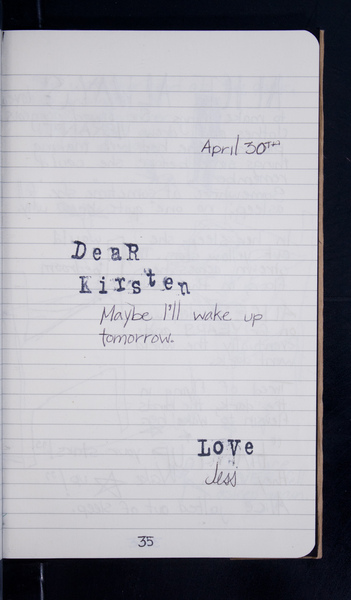 April 30TH
DeaR
Kirsten
Maybe I'll wake up
tomorrow.
LoVe
Jess
35